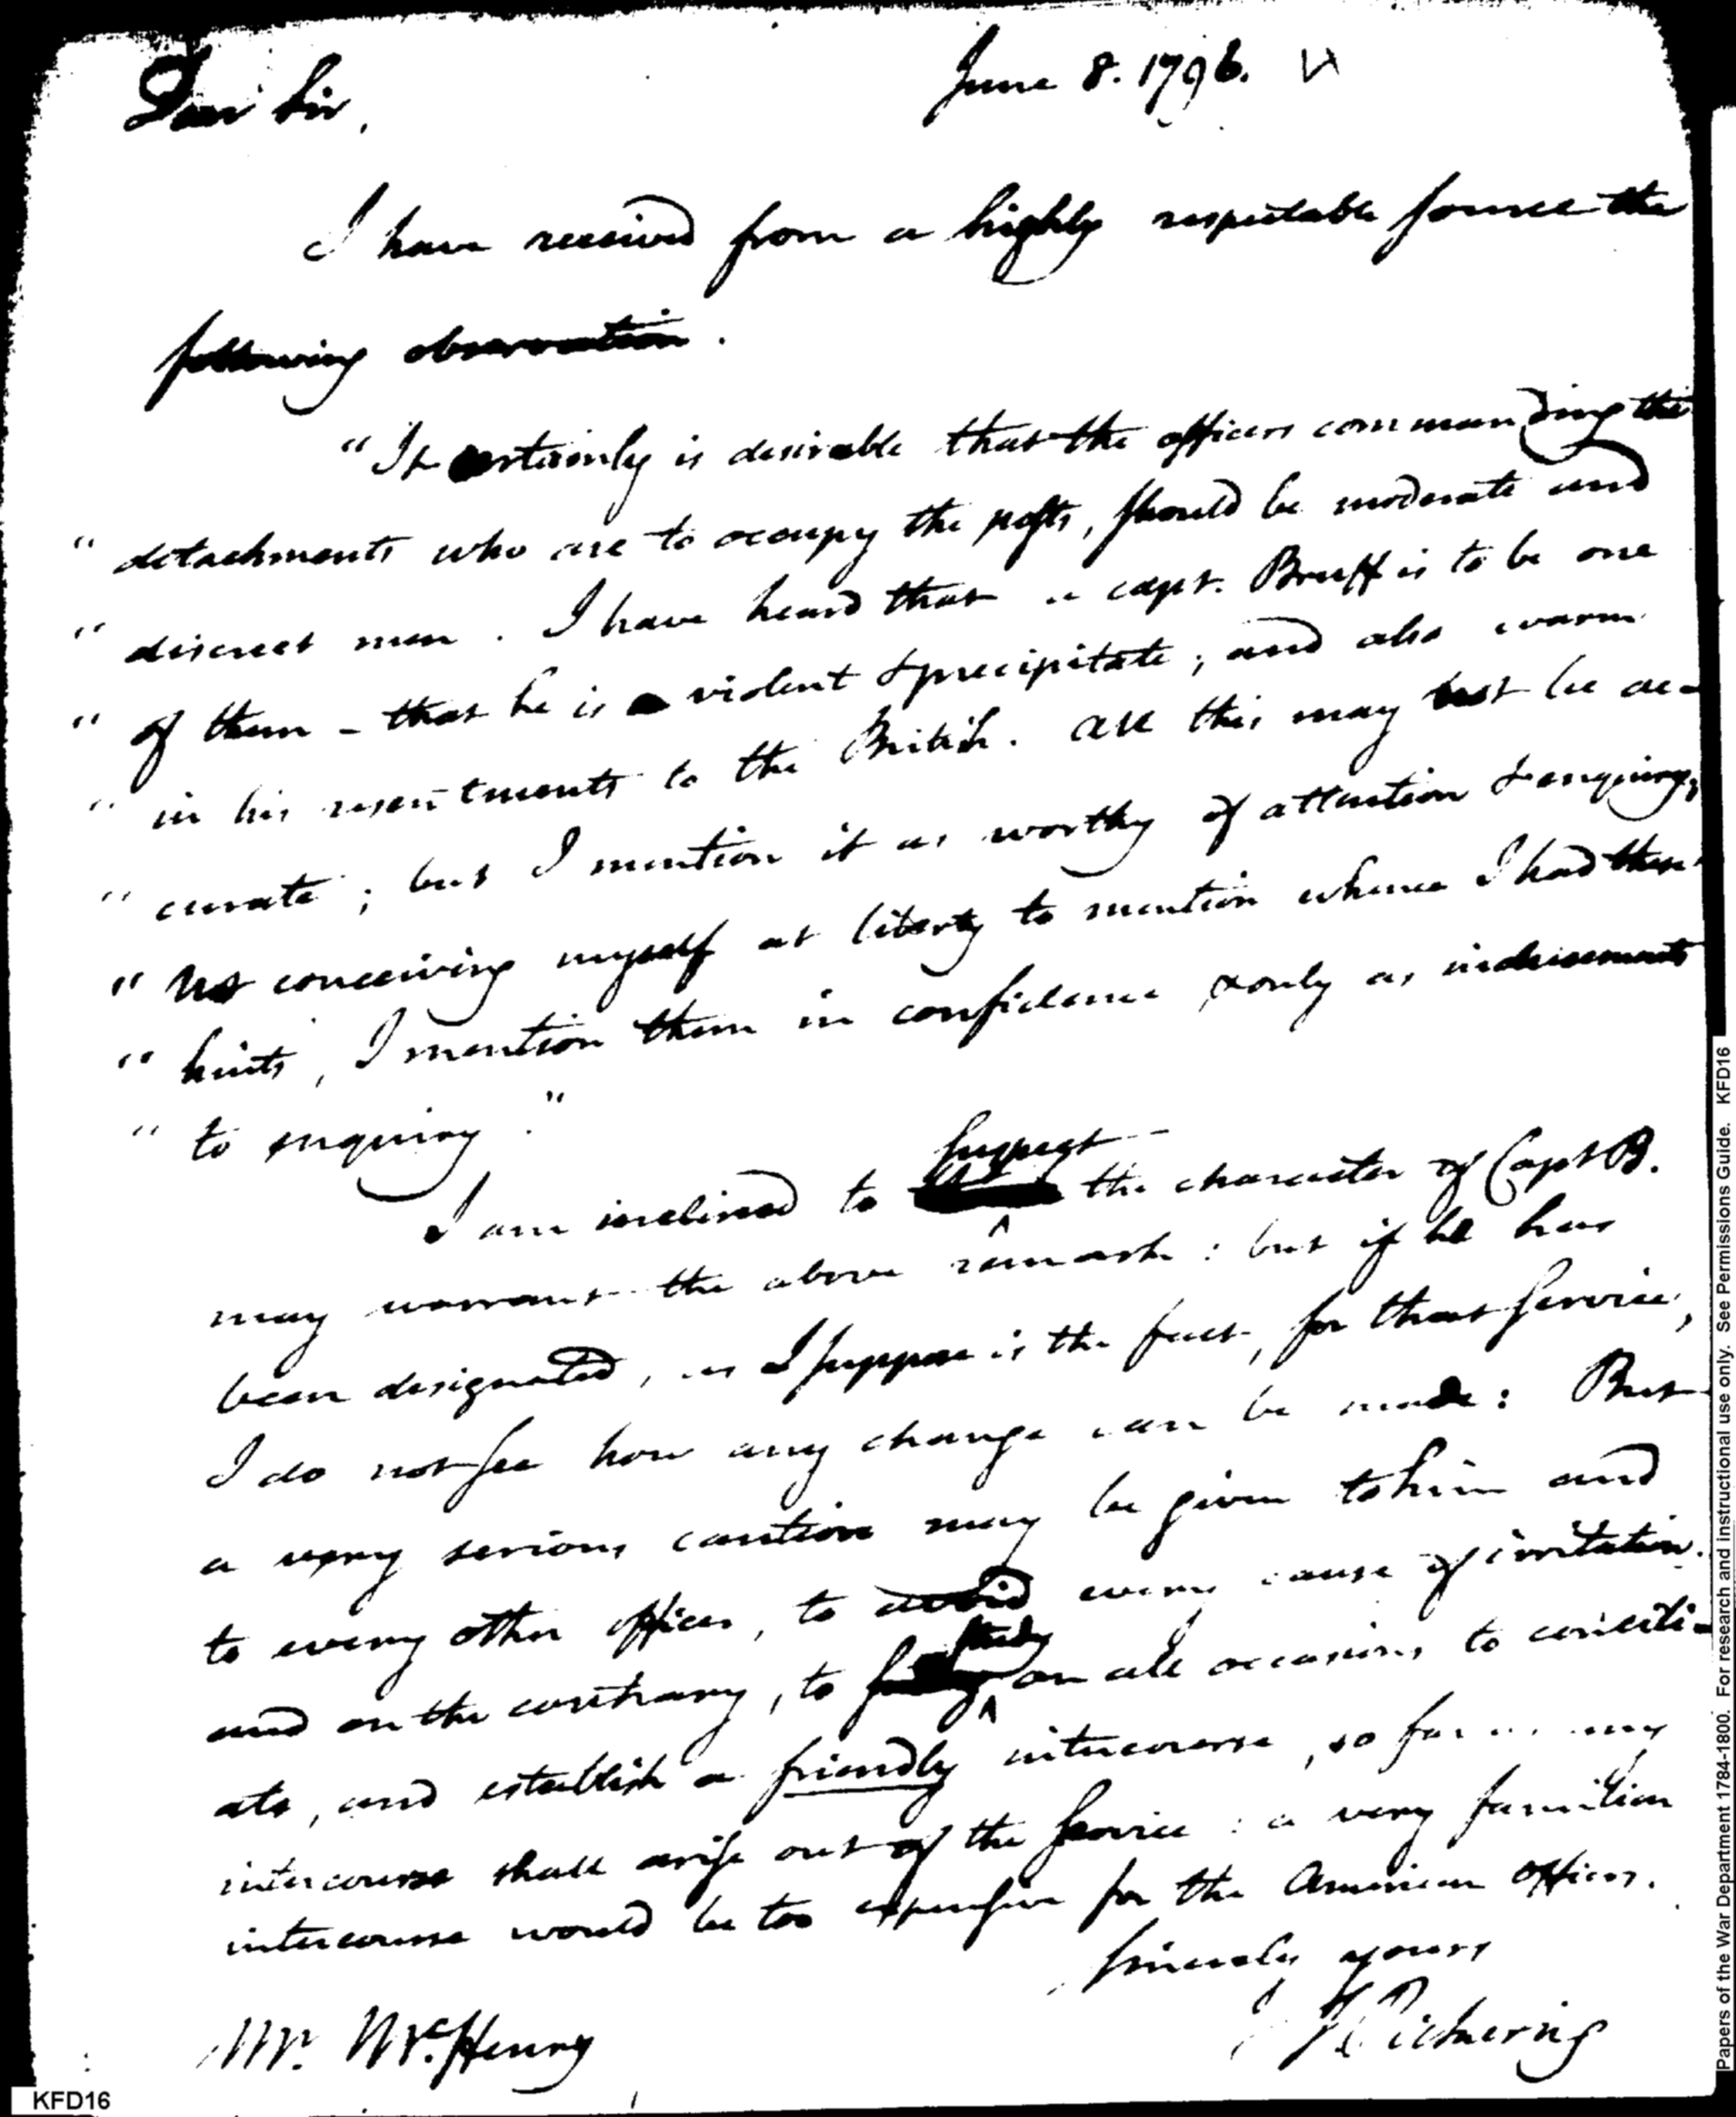 June 8. 1796.
Dear Sir,
I have received from a highly respectable source the
following observation.
"It certainly is desirable that the officers commanding the
" detachments who are to occupy the posts, should be moderate and
" discreet men. I have heard that a capt. Bruff is to be one
" of them - that he is violent & precipitate; and also warm
" in his resentments to the British. All this may not be ac-
" curate; but I mention it as worthy of attention & enquiry;
" Not conceiving myself at liberty to mention whence I had these
" hints, I mention them in confidence & only as inducements
" to enquiry."
suspect
I am inclined to the character of Capt B.
may warrant the above remark: but if he has
been designated, as I suppose is the fact, for that service,
I do not see how any change can be made: But
a very serious caution may be given to him and
to every other officer, to avoid every cause of irritation.
study
and on the contrary, to on all occasions to concili-
ate, and establish a friendly intercourse, so far as any
intercourse shall arise out of the service: a very familiar
intercourse would be too expensive for the American officers.
sincerely yours
T Pickering
Mr. McHenry
KFD16
Papers of the War Department 1784-1800. For research and instructional use only. See Permissions Guide. KFD16